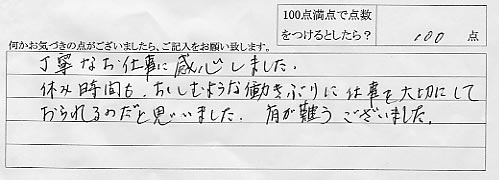 100点満点で点数
をつけるとしたら？ 100 点
何かお気づきの点がございましたら、ご記入をお願い致します。
丁寧なお仕事に感心しました。
休み時間も、おしむような働きぶりに仕事を大切にして
おられるのだと思いました。 有が難うございました。